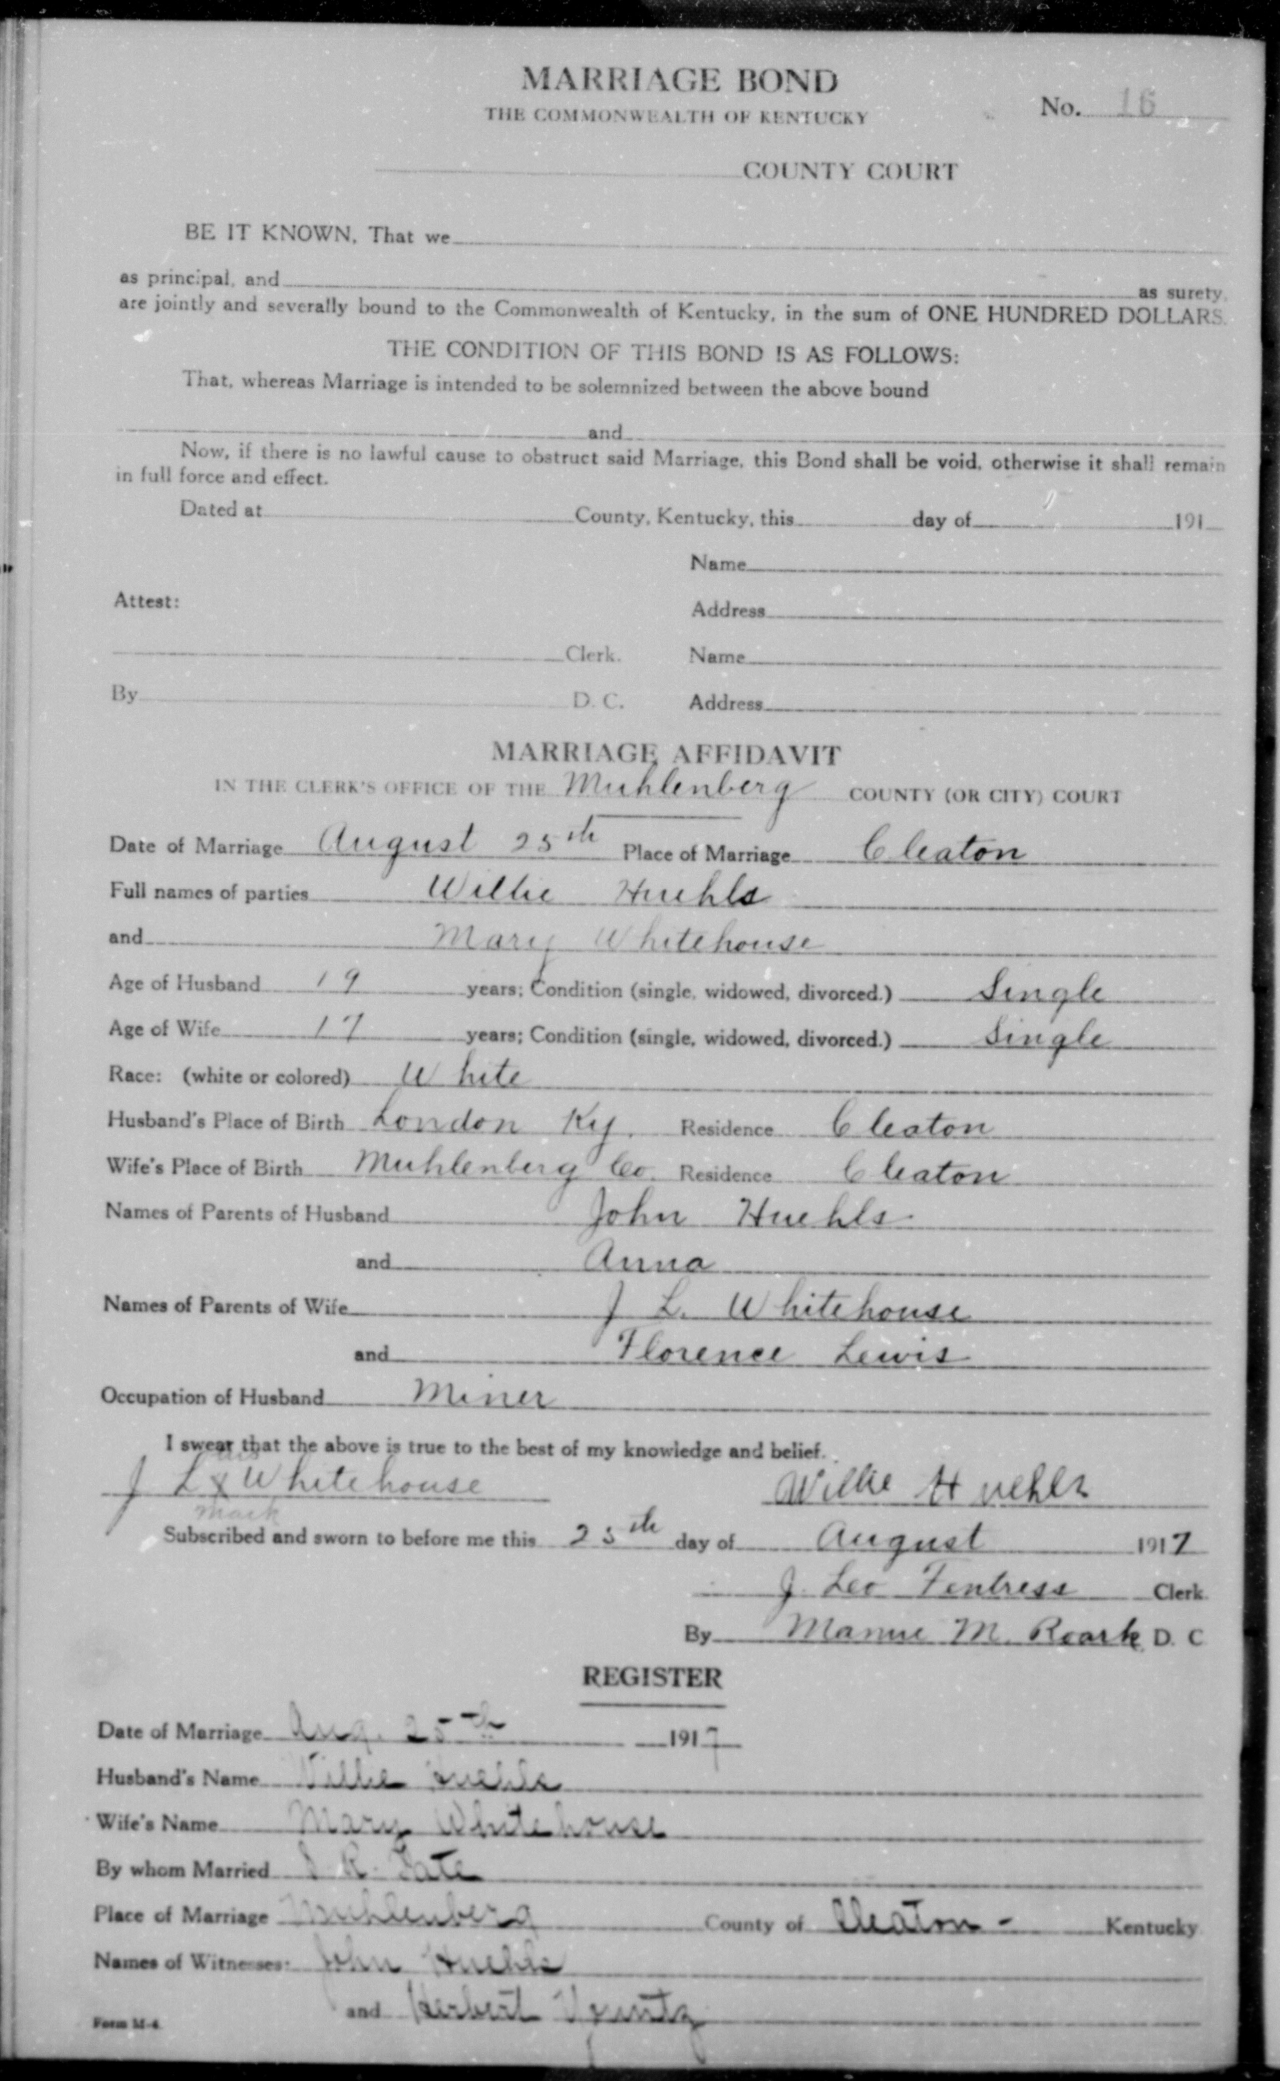 MARRIAGE BOND
THE COMMONWEALTH OF KENTUCKY
No. 16
COUNTY COURT
BE IT KNOWN, That we
as principal, and as surety,
are jointly and severally bound to the Commonwealth of Kentucky, in the sum of ONE HUNDRED DOLLARS.
THE CONDITION OF THIS BOND IS AS FOLLOWS:
That, whereas Marriage is intended to be solemnized between the above bound
and
Now, if there is no lawful cause to obstruct said Marriage, this Bond shall be void, otherwise it shall remain
in full force and effect.
Dated at County, Kentucky, this day of 191
Name
Attest:
Address
Clerk. Name
By D. C. Address
MARRIAGE AFFIDAVIT
IN THE CLERK'S OFFICE OF THE Muhlenberg COUNTY (OR CITY) COURT
Date of Marriage August 25th Place of Marriage Cleaton
Full names of parties Willie Huehls
and Mary Whitehouse
Age of Husband 19 years; Condition (single, widowed, divorced.) Single
Age of Wife 17 years; Condition (single, widowed, divorced.) Single
Race: (white or colored) White
Husband's Place of Birth London Ky. Residence Cleaton
Wife's Place of Birth Muhlenberg Co. Residence Cleaton
Names of Parents of Husband John Huehls
and Anna
Names of Parents of Wife J L. Whitehouse
and Florence Lewis
Occupation of Husband Miner
I swear that the above is true to the best of my knowledge and belief.
his
J L x Whitehouse Willie Huehls
mark
Subscribed and sworn to before me this 25th day of August 1917
J. Leo Fentress Clerk
By Mamie M. Roark D. C
REGISTER
Date of Marriage Aug. 25th 1917
Husband's Name Willie Huehls
Wife's Name Mary Whitehouse
By whom Married R. Tate
Place of Marriage Muhlenberg County of Cleaton - Kentucky
Names of Witnesses: John Huehls
and Herbert
Form M-4